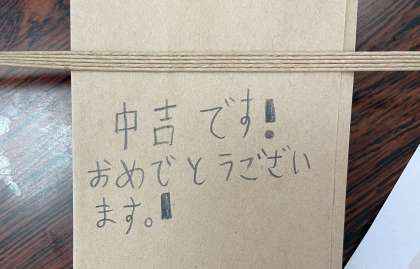 中吉です!
おめでとうござい
ます。